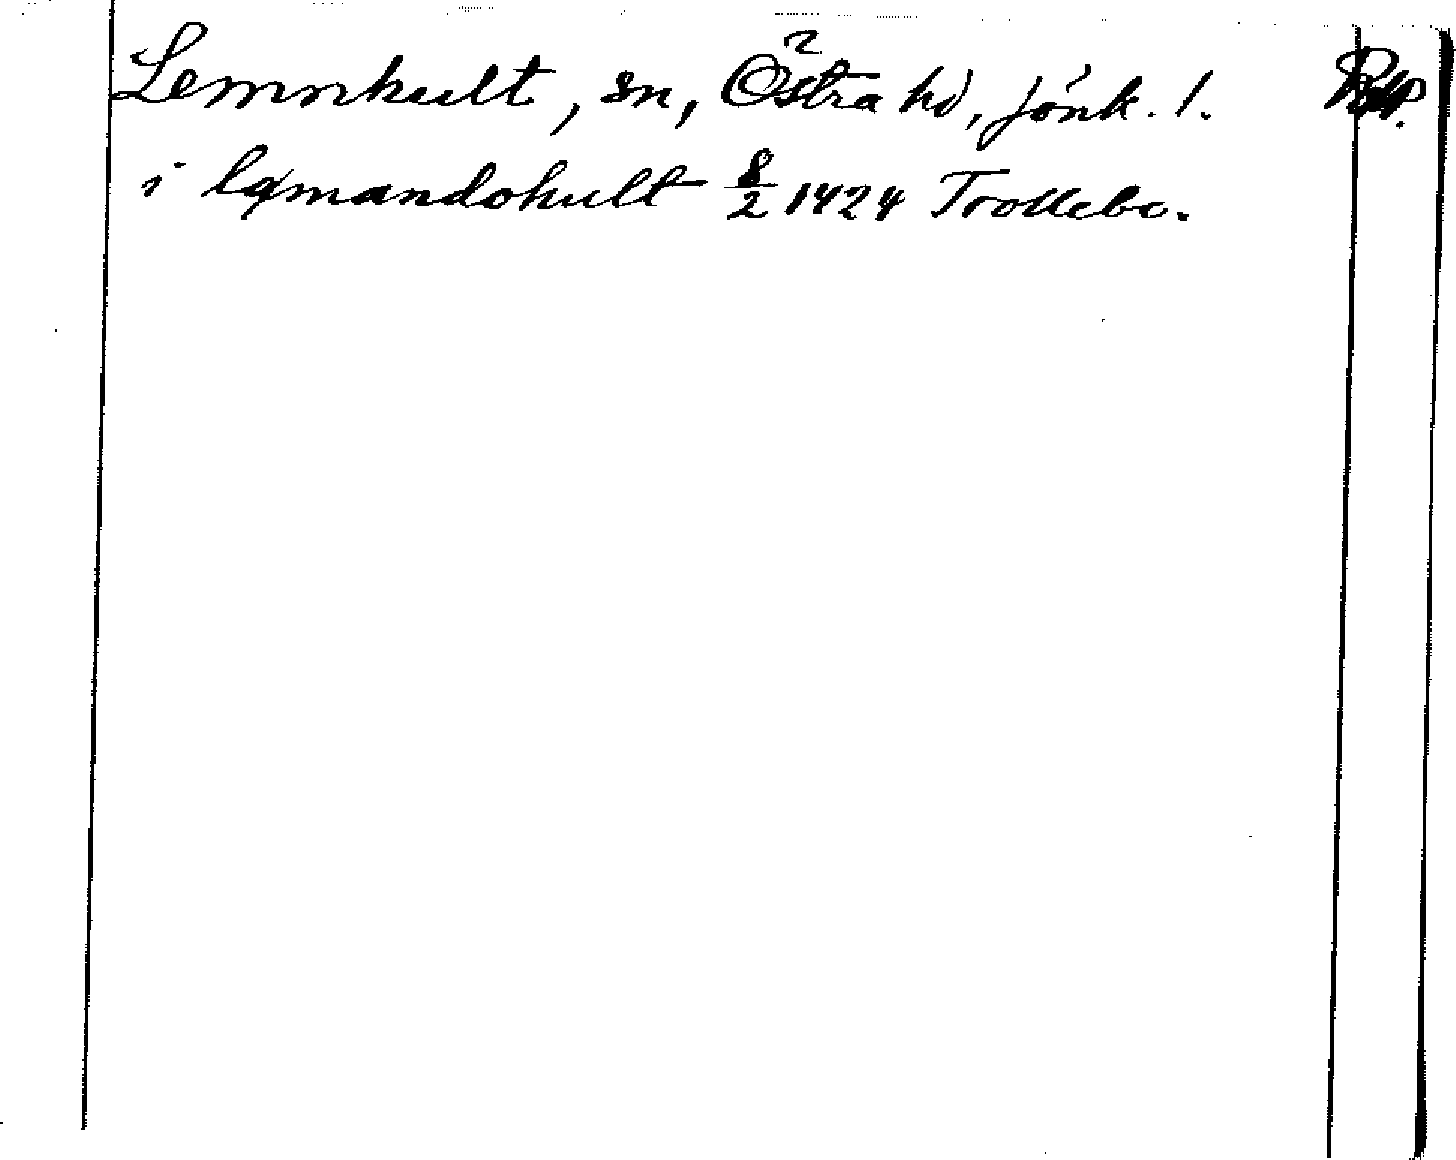 Lemnhult, sn, Östra hd, Jönk. l.
i lämandohult 8/2 1424 Trollebo.